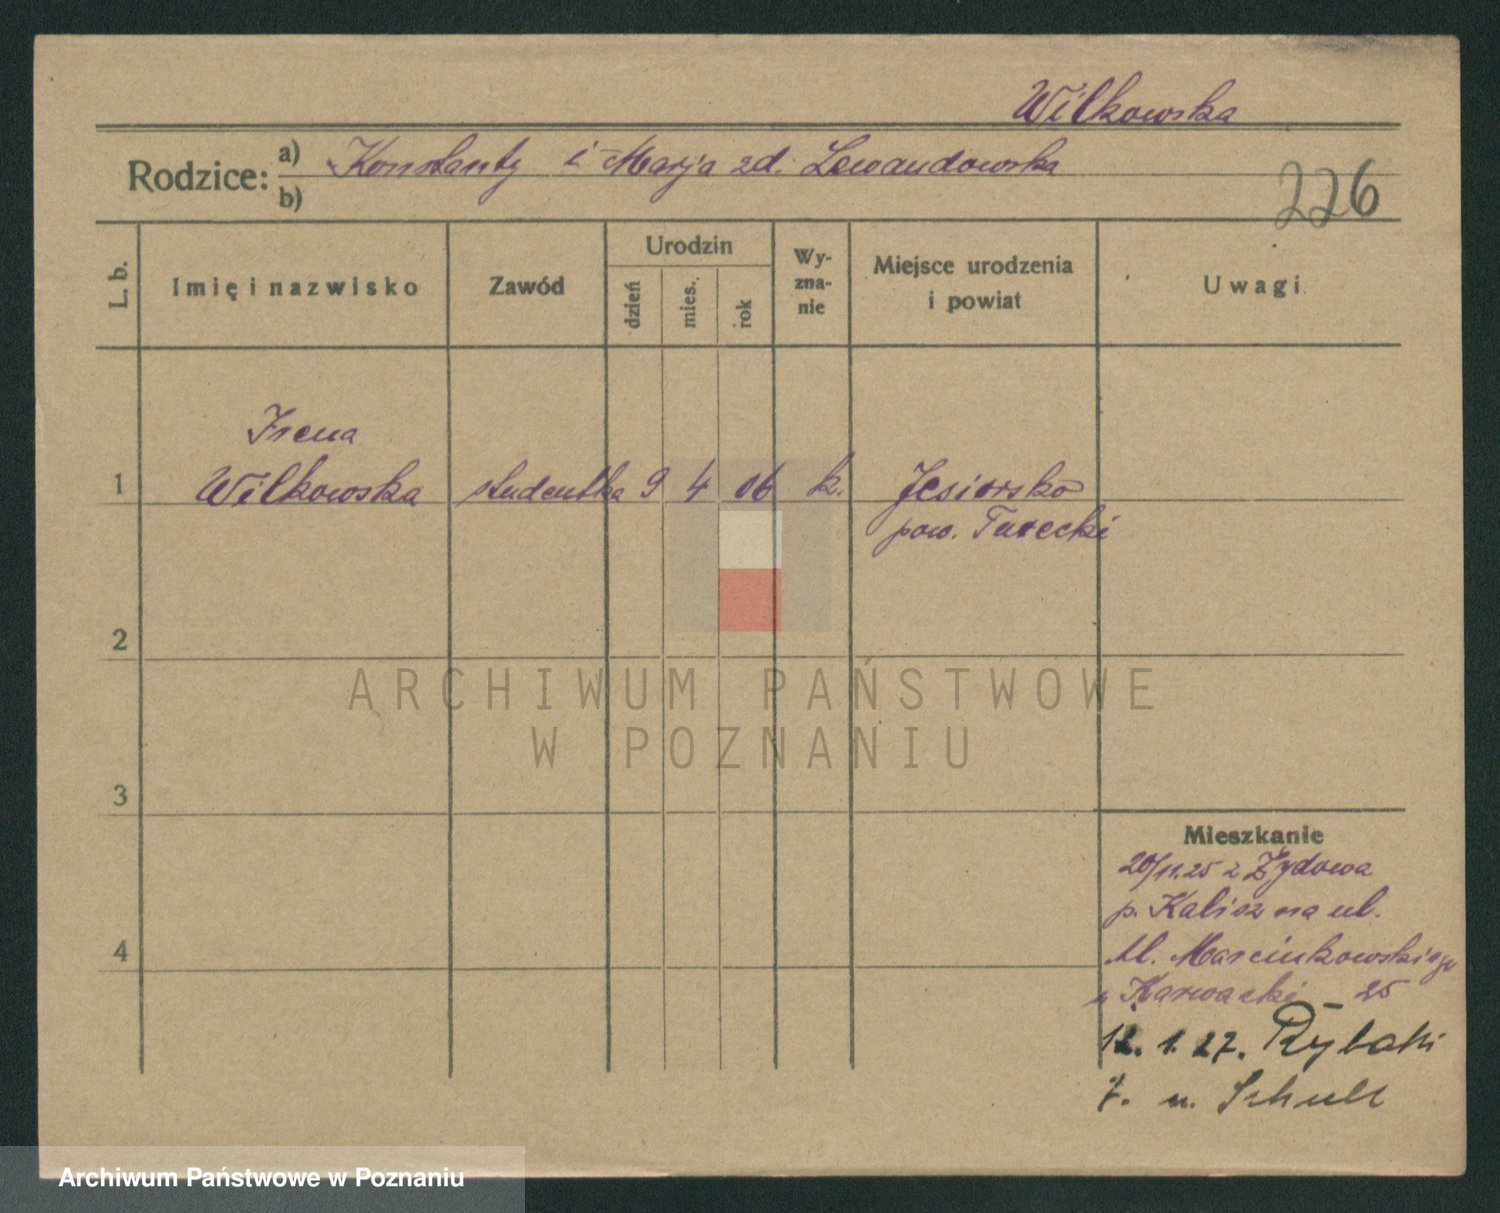 Wilkowska
Rodzice: a) Konstanty i Marja zd. Lewandowska
b)
226
L. b.
Imię i nazwisko
Zawód
Urodzin
dzień
mies.
rok
Wy-
zna-
nie
Miejsce urodzenia
i powiat
Uwagi
Irena
1 Wilkowska studentka 9 4 06 k. Jesiorsko
pow. Turecki
2
3
4
ARCHIWUM PAŃSTWOWE
W POZNANIU
Mieszkanie
20/11.25 z Żydowa
p. Kalisz na ul.
Al. Marcinkowskiego
u Karwacki 25
12. 1. 27. Rybaki
7. u. Schull
Archiwum Państwowe w Poznaniu